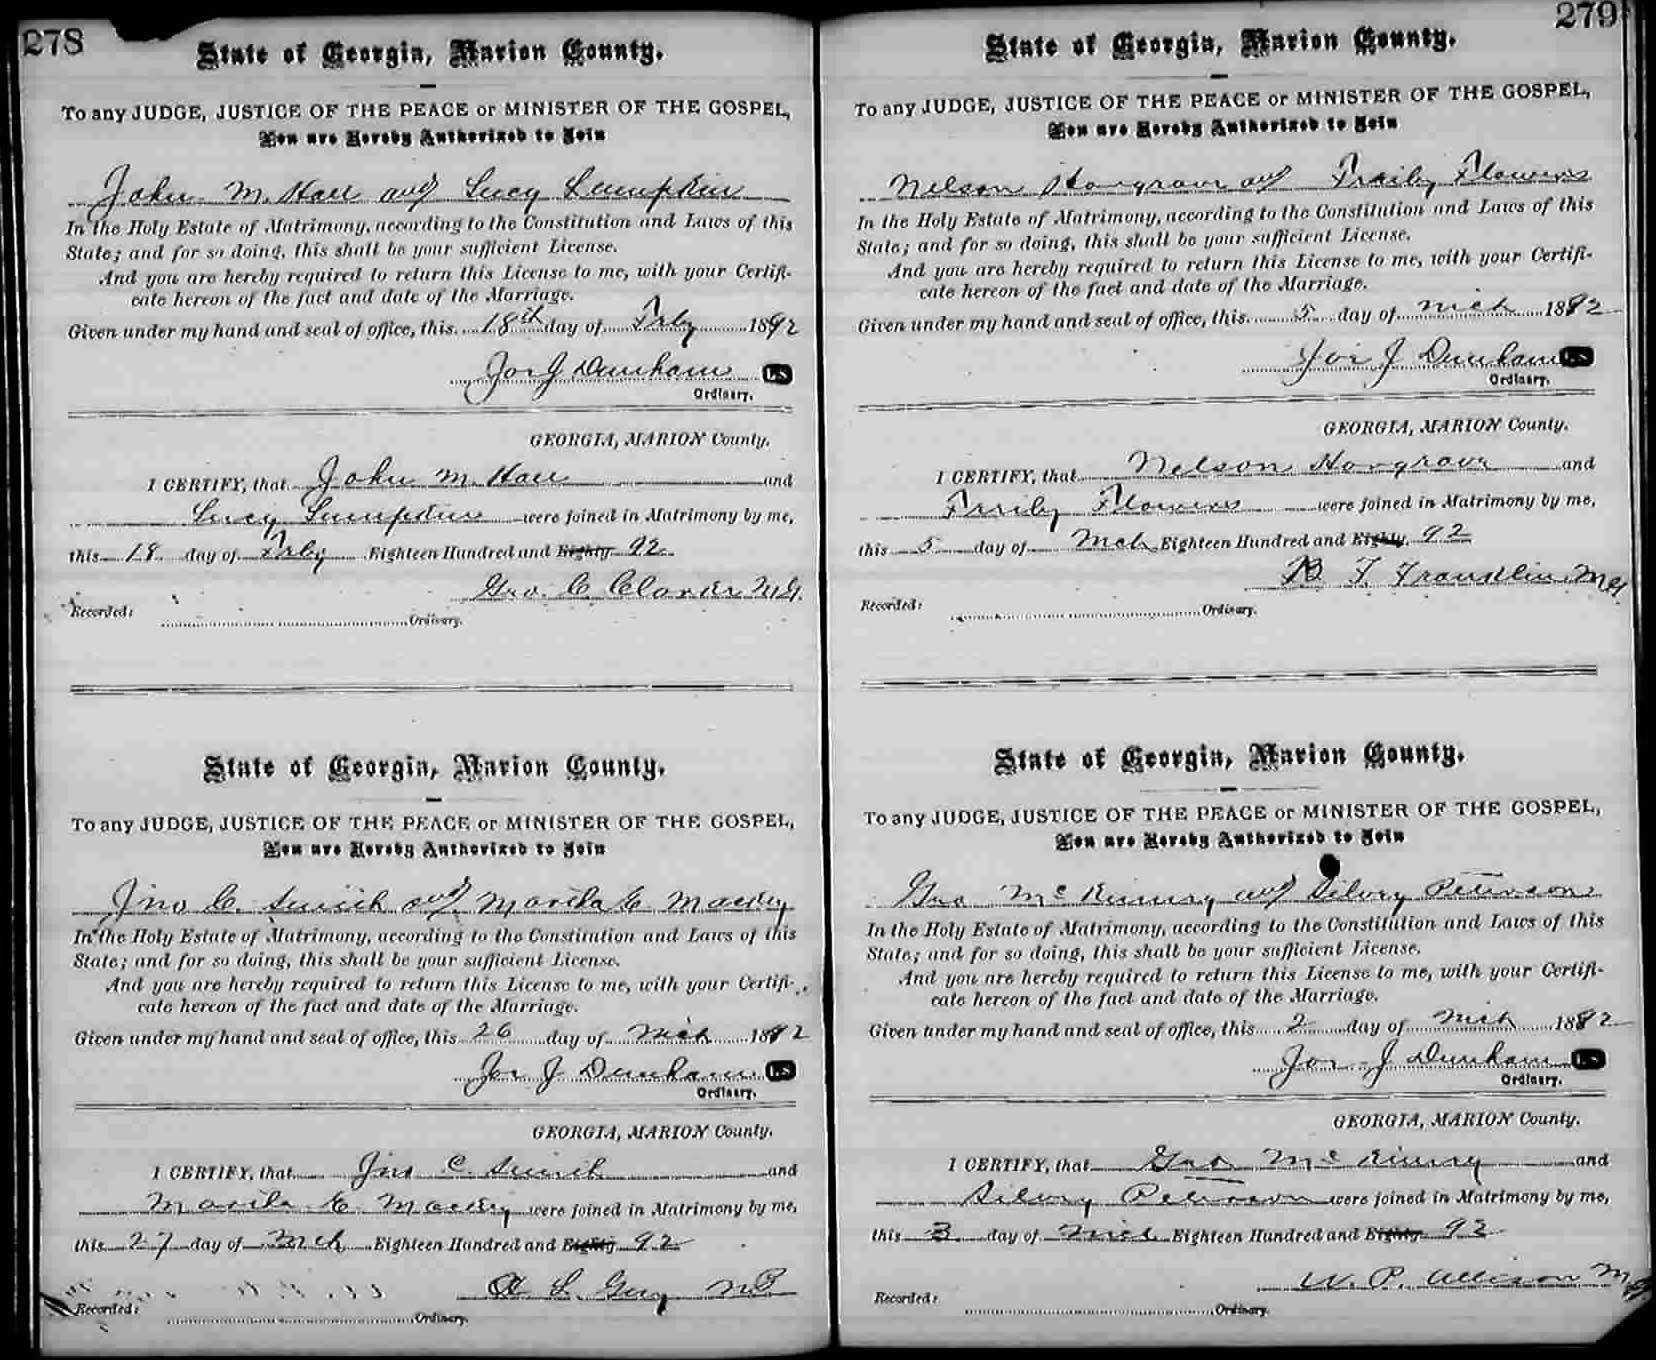 278
State of Georgia, Marion County.
To any JUDGE, JUSTICE OF THE PEACE or MINISTER OF THE GOSPEL,
You are Hereby Authorized to Join
John M. Hall and Lucy Lumpkin
In the Holy Estate of Matrimony, according to the Constitution and Laws of this
State; and for so doing, this shall be your sufficient License.
And you are hereby required to return this License to me, with your Certifi-
cate hereon of the fact and date of the Marriage.
Given under my hand and seal of office, this 18th day of Feby 1892
Jos J Dunham LS
Ordinary.
GEORGIA, MARION County.
I CERTIFY, that John M. Hall and
Lucy Lumpkin were joined in Matrimony by me,
this 18 day of Feby Eighteen Hundred and Eighty 92
Geo. C. M.G.
Recorded:
Ordinary.
State of Georgia, Marion County.
To any JUDGE, JUSTICE OF THE PEACE or MINISTER OF THE GOSPEL,
You are Hereby Authorized to Join
Jno C. and E.
In the Holy Estate of Matrimony, according to the Constitution and Laws of this
State; and for so doing, this shall be your sufficient License.
And you are hereby required to return this License to me, with your Certifi-
cate hereon of the fact and date of the Marriage.
Given under my hand and seal of office, this 26 day of Mch 1892
Jos J Dunham LS
Ordinary.
GEORGIA, MARION County.
I CERTIFY, that Jno C. and
E. were joined in Matrimony by me,
this 27 day of Mch Eighteen Hundred and Eighty 92
L.
Recorded:
Ordinary.
279
State of Georgia, Marion County.
To any JUDGE, JUSTICE OF THE PEACE or MINISTER OF THE GOSPEL,
You are Hereby Authorized to Join
Nelson Hargrove and Flowers
In the Holy Estate of Matrimony, according to the Constitution and Laws of this
State; and for so doing, this shall be your sufficient License.
And you are hereby required to return this License to me, with your Certifi-
cate hereon of the fact and date of the Marriage.
Given under my hand and seal of office, this 5 day of Mch 1892
Jos J Dunham LS
Ordinary.
GEORGIA, MARION County.
I CERTIFY, that Nelson Hargrove and
Flowers were joined in Matrimony by me,
this 5 day of Mch Eighteen Hundred and Eighty 92
B T Franklin MG
Recorded:
Ordinary.
State of Georgia, Marion County.
To any JUDGE, JUSTICE OF THE PEACE or MINISTER OF THE GOSPEL,
You are Hereby Authorized to Join
Geo McKinney and Silvey Peterson
In the Holy Estate of Matrimony, according to the Constitution and Laws of this
State; and for so doing, this shall be your sufficient License.
And you are hereby required to return this License to me, with your Certifi-
cate hereon of the fact and date of the Marriage.
Given under my hand and seal of office, this 2 day of Mch 1892
Jos J Dunham LS
Ordinary.
GEORGIA, MARION County.
I CERTIFY, that Geo McKinney and
Silvey Peterson were joined in Matrimony by me,
this 3 day of Mch Eighteen Hundred and Eighty 92
W. P. Allison MG
Recorded:
Ordinary.